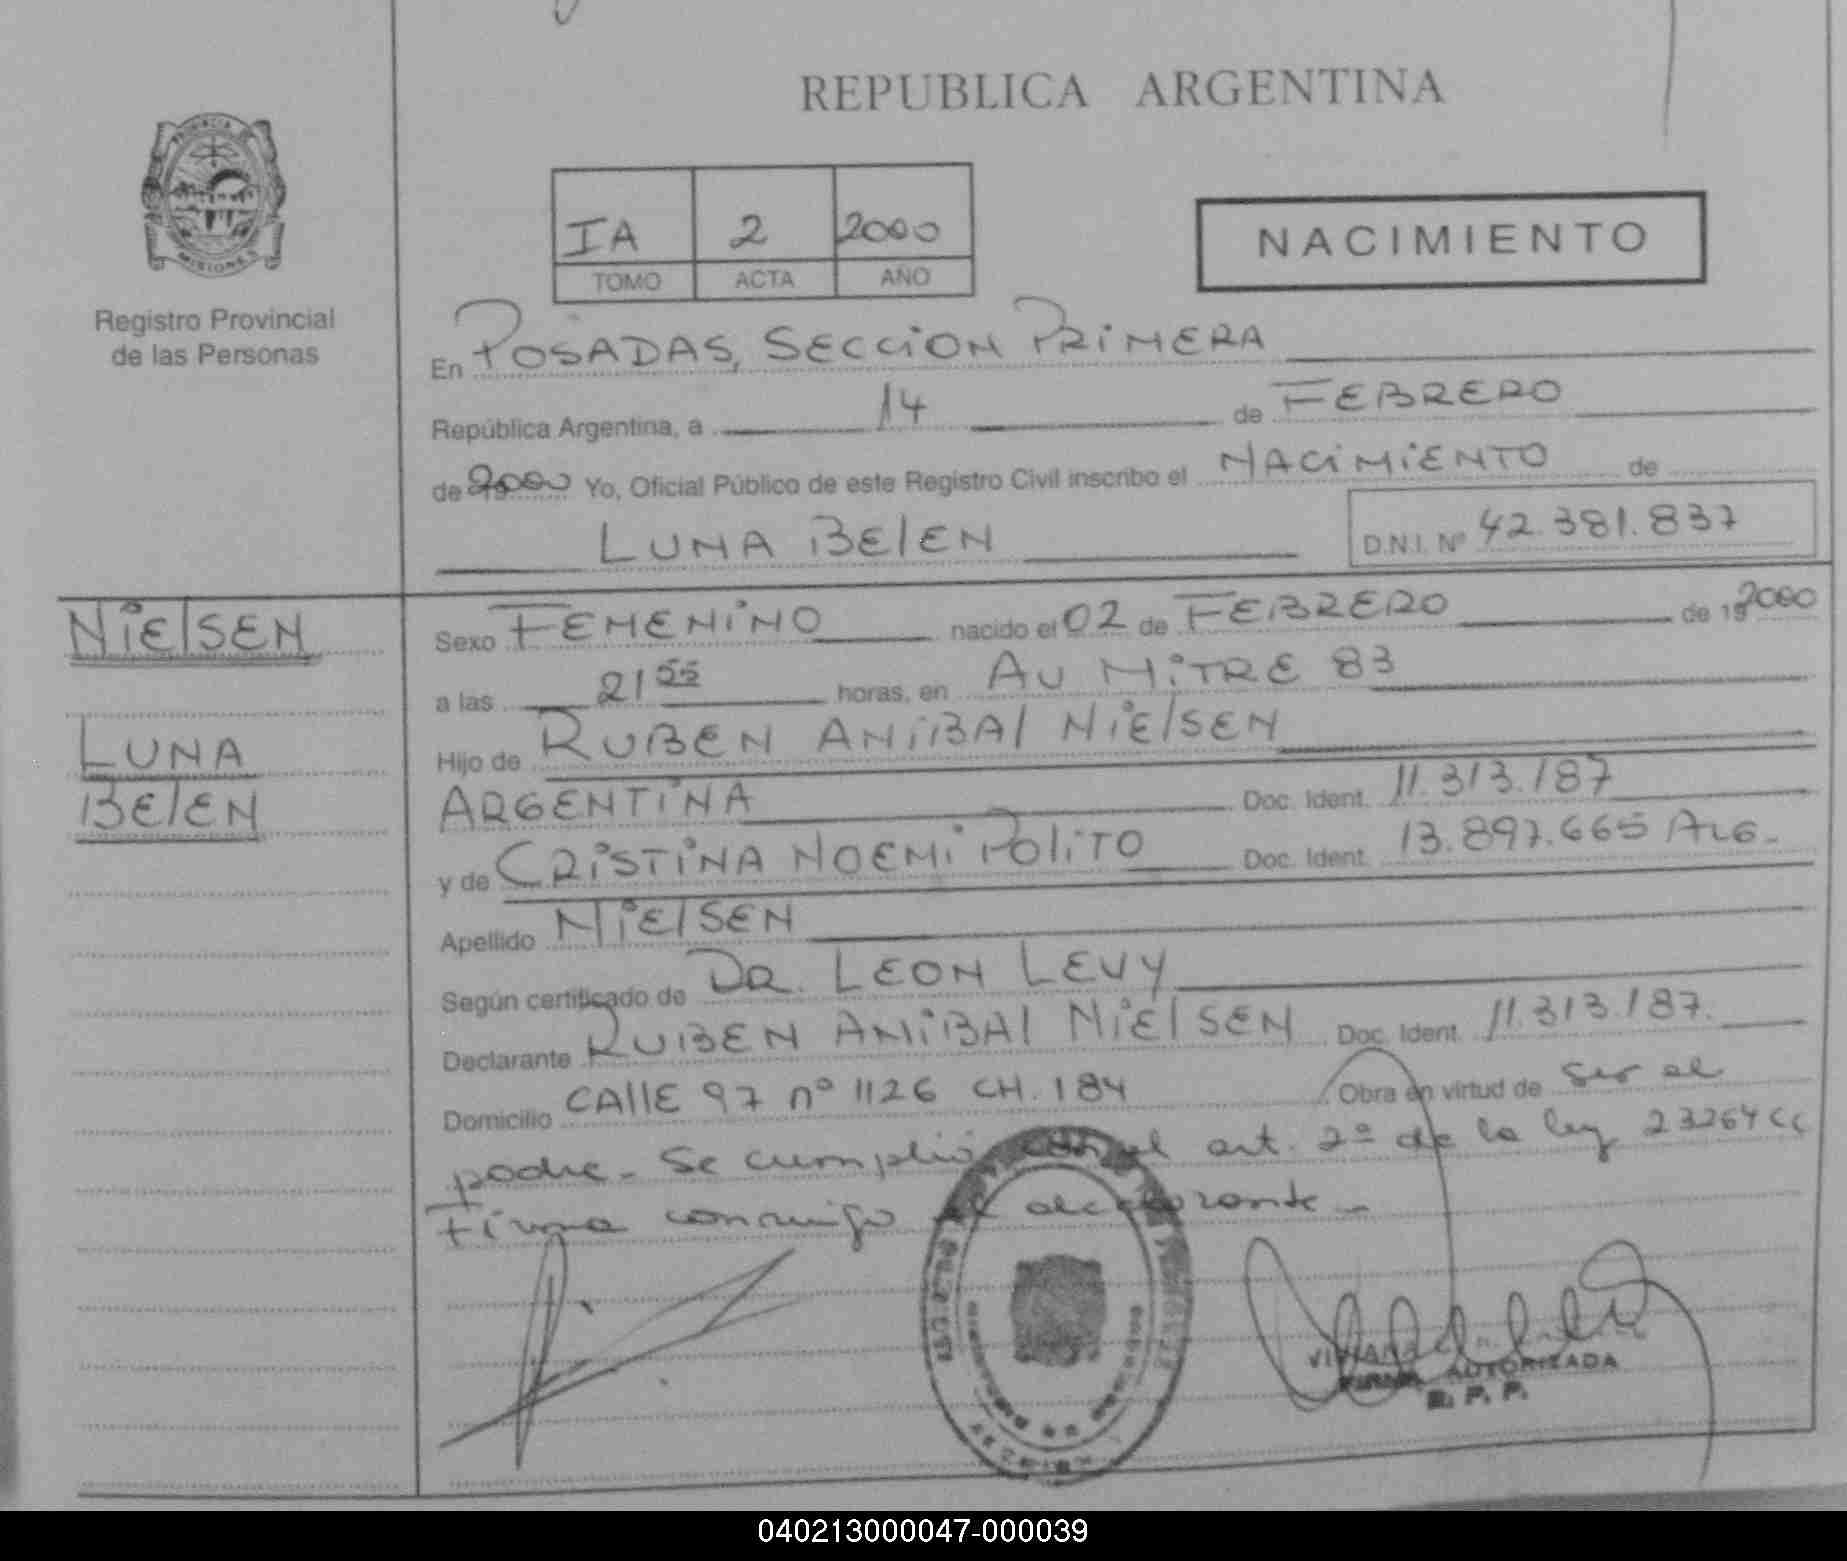 REPUBLICA ARGENTINA
PROVINCIA DE
MISIONES
Registro Provincial
de las Personas
IA 2 2000
TOMO ACTA AÑO
NACIMIENTO
En POSADAS, SECCION PRIMERA
República Argentina, a 14 de FEBRERO
de 2000 Yo, Oficial Público de este Registro Civil inscribo el NACIMIENTO de
LUNA BELEN D.N.I. Nº 42.381.837
NIELSEN
LUNA
BELEN
Sexo FEMENINO nacido el 02 de FEBRERO de 19 2000
a las 21 55 horas, en AV MITRE 83
Hijo de RUBEN ANIBAL NIELSEN
ARGENTINA Doc. Ident. 11.313.187
y de CRISTINA NOEMI POLITO Doc. Ident. 13.897.665 ARG.
Apellido NIELSEN
Según certificado de DR. LEON LEVY
Declarante RUBEN ANIBAL NIELSEN Doc. Ident. 11.313.187.
Domicilio CALLE 97 nº 1126 CH. 184 Obra en virtud de ser el
padre. Se cumplió con el art. 2º de la ley 23264 CC
Firma conmigo el declarante.
FIRMA AUTORIZADA
R. P. P.
040213000047-000039